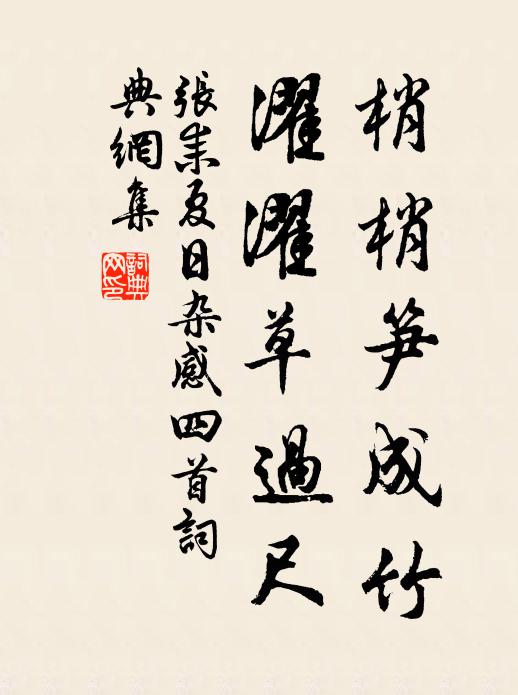 梢梢笋成竹
濯濯草過尺
張耒夏日杂感四首詞
典網集
詞典網印